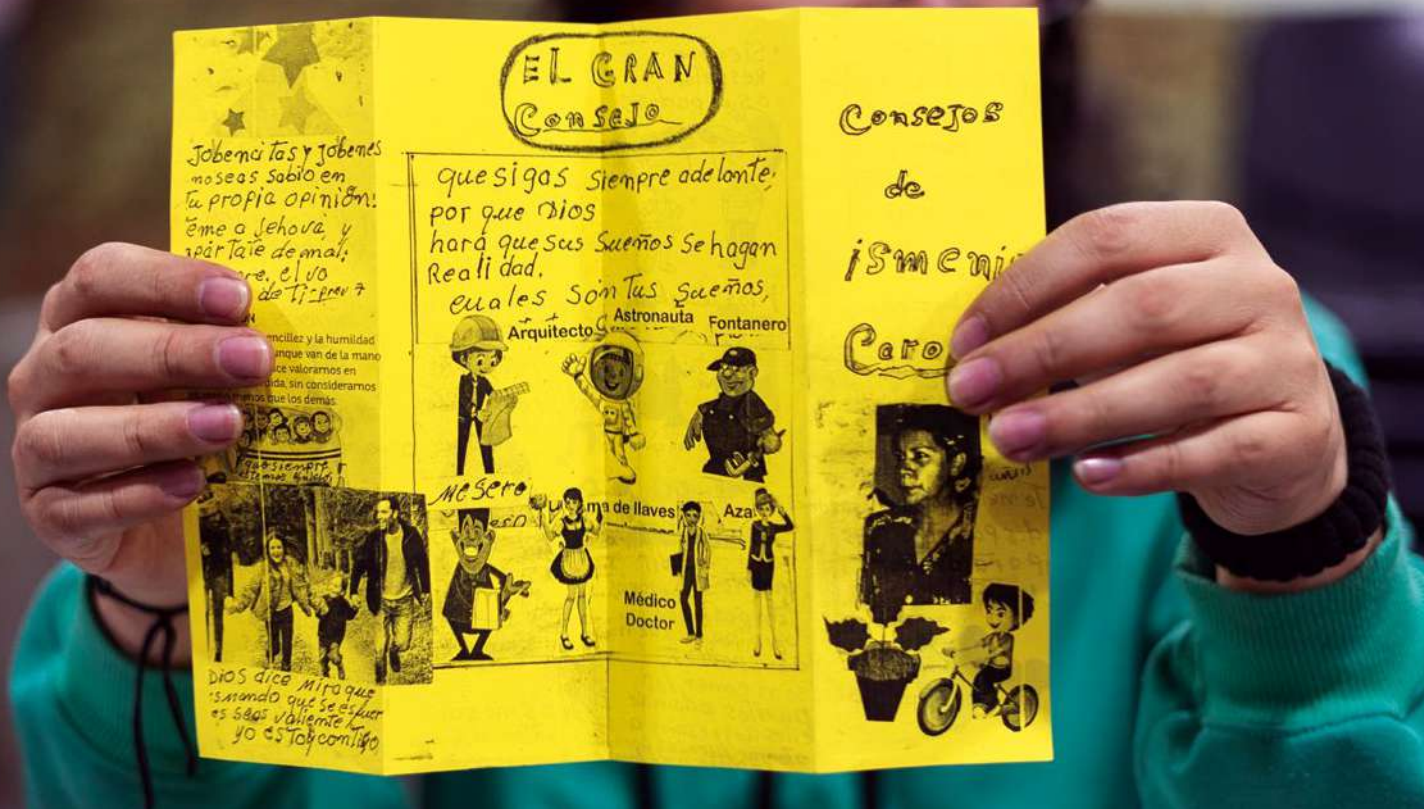 Jobencitas y Jobenes
no seas sabio en
Tu propia opinión:
eme a Jehová, y
apártate de mal;
de Ti-prev 7
encillez y la humildad
unque van de la mano
ice valorarnos en
dida, sin considerarnos
menos que los demás.
que siempre
DIOS dice Mira que
que se esfuer
es seas valiente
yo estoy contigo
EL GRAN
Consejo
que sigas siempre adelante,
por que Dios
hará que sus sueños se hagan
Realidad.
cuales son Tus Sueños,
Arquitecto
Astronauta
Fontanero
Mesero
ma de llaves
Aza
Médico
Doctor
Consejos
de
ismeni
Caro